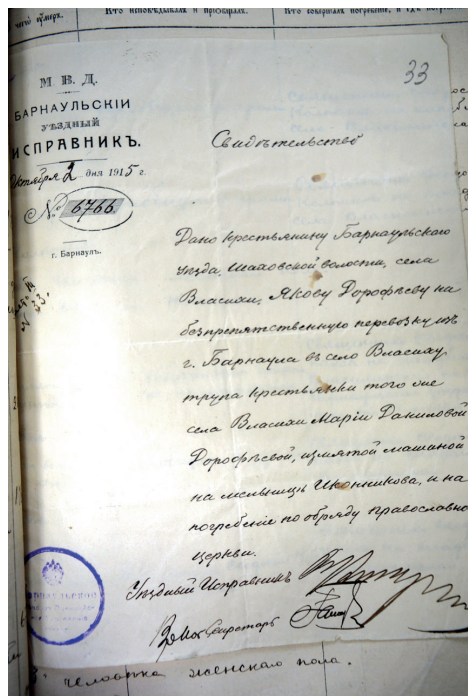 Кто исповѣдывалъ и пріобщалъ.
Кто совершалъ погребеніе, и гдѣ
33
М. В. Д.
БАРНАУЛЬСКІЙ
УѢЗДНЫЙ
ИСПРАВНИКЪ.
Октября 2 дня 1915 г.
№ 6766.
г. Барнаулъ.
Свидѣтельство
Дано крестьянину Барнаульскаго
уѣзда, Шаховской волости, села
Власихи, Якову Дорофѣеву на
безпрепятственную перевозку изъ
г. Барнаула въ село Власиху
трупа крестьянки того же
села Власихи Маріи Даниловой
Дорофѣевой, измятой машиной
на мельницѣ Иконникова, и на
погребеніе по обряду православно
церкви.
Уѣздный Исправникъ
Секретарь
человѣка женскаго пола.